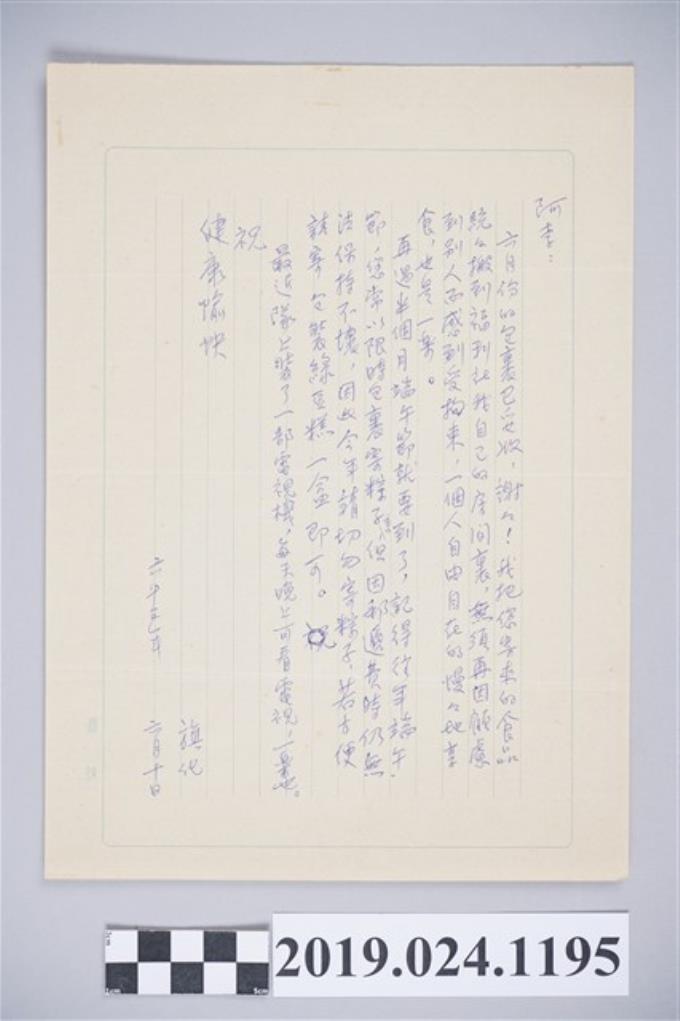 阿李：
六月份的包裹已安收，謝々！我把您寄來的食品
統々搬到福利社我自己的房间裏，無須再因顧慮
到别人而感到受拘束，一個人自由自在的慢々地享
食，也是一樂。
再過半個月端午節就要到了，記得往年端午
節，您常以限時包裹寄粽子，但因郵遞費時仍無
法保持不壞，因此今年請切勿寄粽子，若方便
請寄包裝綠豆糕一盒即可。
最近隊上裝了一部電視機，每天晚上可看電視，一樂也。
祝
健康愉快
旗化
六十五年 六月十日
2019.024.1195